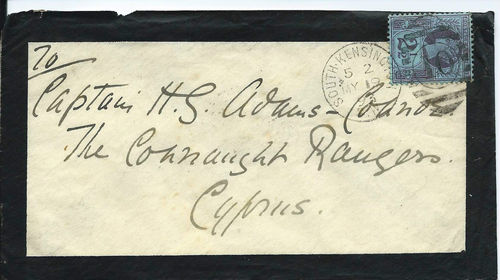 To
Captain H.G. Adams-Connor
The Connaught Rangers.
Cyprus.
SOUTH-KENSING
5 2
MY 12